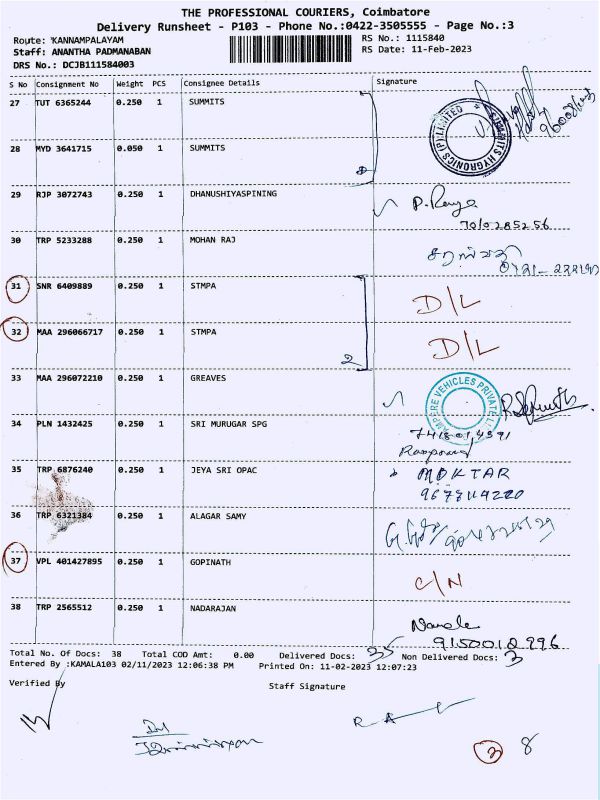 THE PROFESSIONAL COURIERS, Coimbatore
Delivery Runsheet - P103 - Phone No.:0422-3505555 - Page No.:3
Route: 'KANNAMPALAYAM RS No.: 1115840
Staff: ANANTHA PADMANABAN RS Date: 11-Feb-2023
DRS No.: DCJB111584003
S No Consignment No Weight PCS Consignee Details Signature
27 TUT 6365244 0.250 1 SUMMITS
28 MYD 3641715 0.050 1 SUMMITS
29 RJP 3072743 0.250 1 DHANUSHIYASPINING
30 TRP 5233288 0.250 1 MOHAN RAJ
31 SNR 6409889 0.250 1 STMPA D/L
32 MAA 296066717 0.250 1 STMPA 2 D/L
33 MAA 296072210 0.250 1 GREAVES AMPERE VEHICLES PRIVATE
34 PLN 1432425 0.250 1 SRI MURUGAR SPG
35 TRP 6876240 0.250 1 JEYA SRI OPAC MOKTAR
36 TRP 6321384 0.250 1 ALAGAR SAMY
37 VPL 401427895 0.250 1 GOPINATH C/N
38 TRP 2565512 0.250 1 NADARAJAN
9150012996
Total No. Of Docs: 38 Total COD Amt: 0.00 Delivered Docs: 35 Non Delivered Docs: 3
Entered By :KAMALA103 02/11/2023 12:06:38 PM Printed On: 11-02-2023 12:07:23
Verified By Staff Signature
3 8